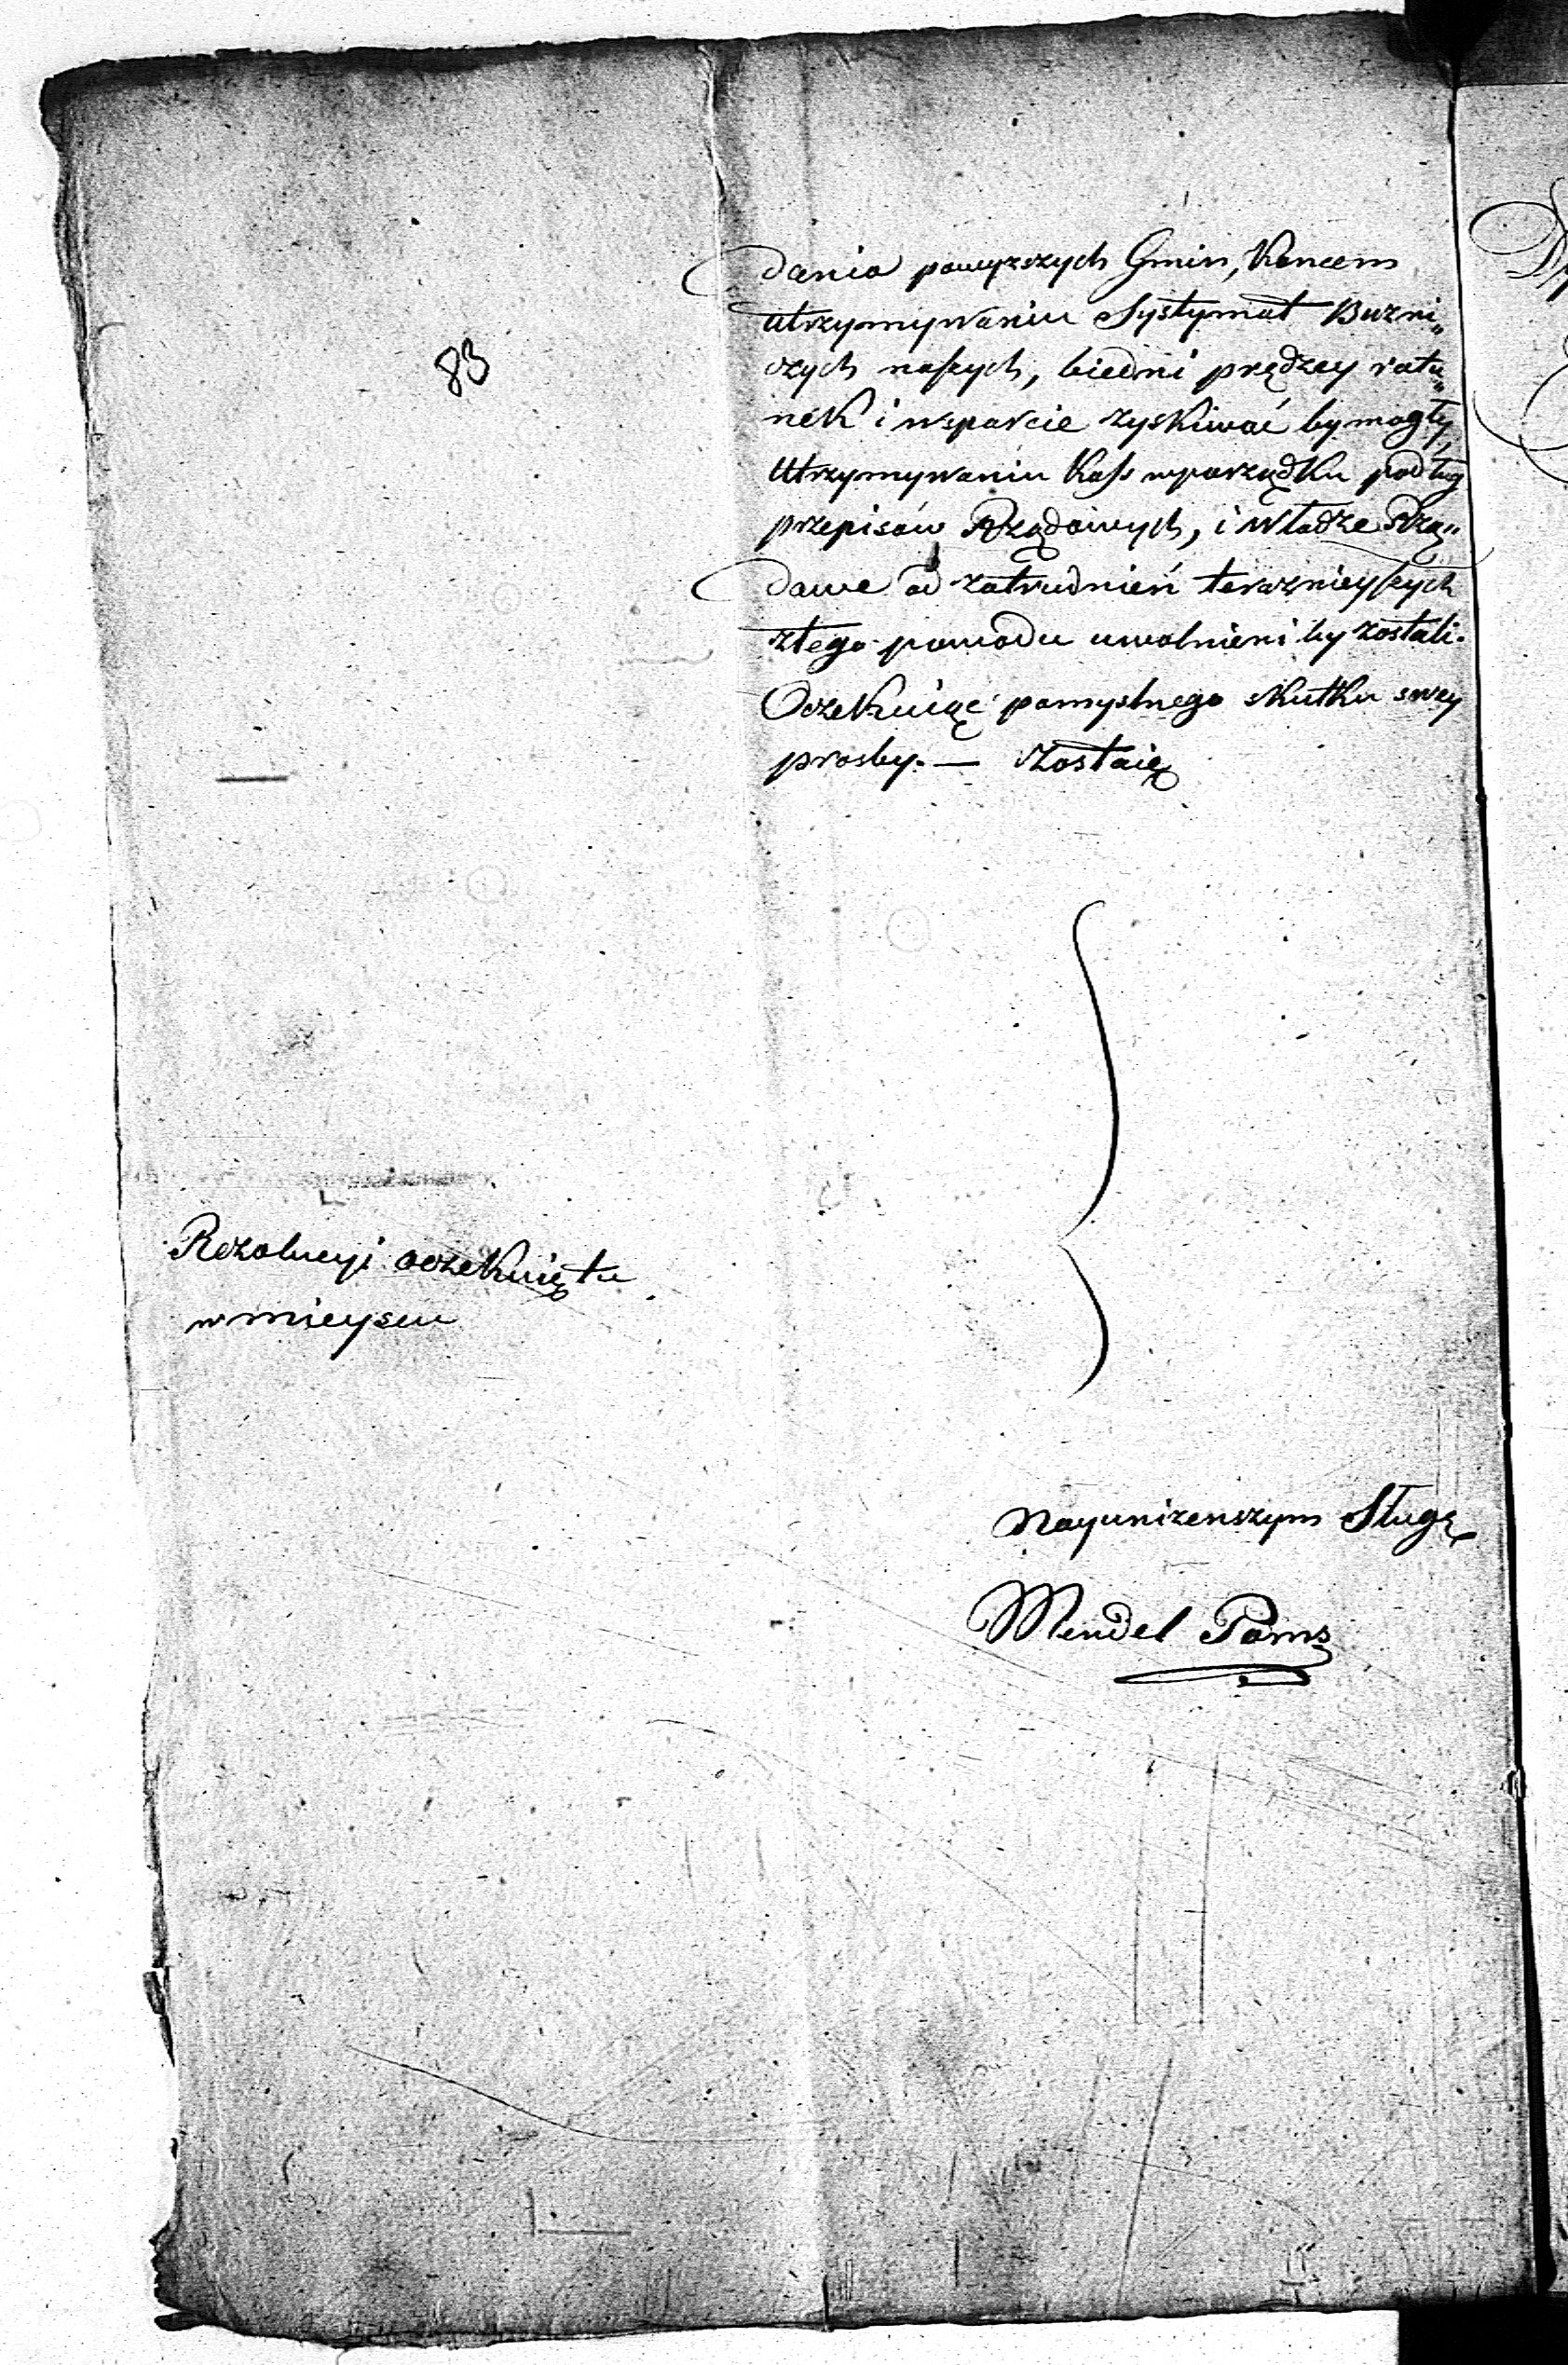 83
dania powyzszych Gmin, Koncem
utrzymywaniu Systymat Buzni„
czych naszych, biedni prędzey ratu„
nek i wsparcie zyskiwać by mogły,
Utrzymywaniu Kass w porządku podług
przepisów Rządowych, i Władze Rzą„
dowe od zatrudnień teraznieyszych
ztego powodu uwolnieni by zostali.
Oczekuiąc pomyslnego skutku swey
prosby. — Zostaię
Rezolucyi oczekuię tu
w mieyscu
Nayunizenszym Sługą
Mendel Pams